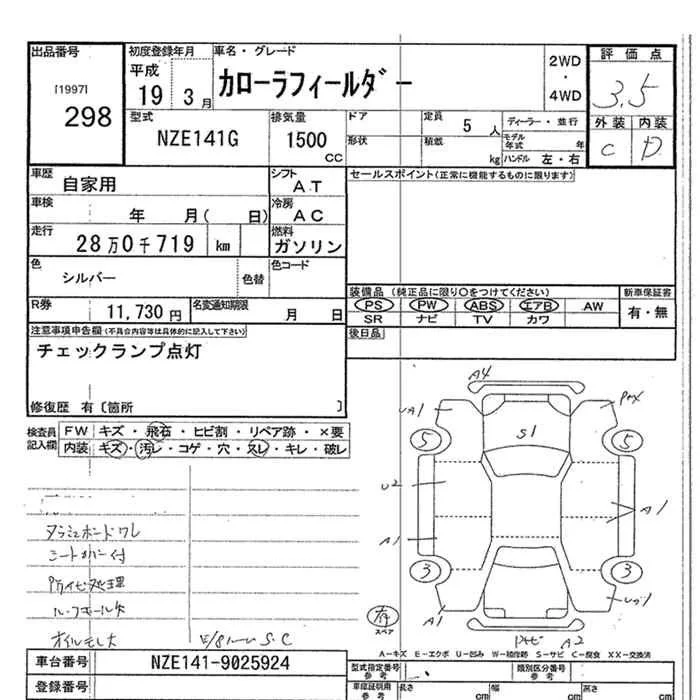 出品番号 初度登録年月 車名・グレード 評価点
[1997] 298
平成 19 3月
カローラフィールダー
2WD ・ 4WD
3.5
型式 NZE141G
排気量 1500 CC
ドア 定員 5人 ディーラー・並行
形状 積載 kg モデル年式 年 ハンドル 左・右
外装 内装
C D
車歴 自家用
シフト AT
セールスポイント(正常に機能するものに限ります)
車検 年 月( 日)
冷房 AC
走行 28万0千719 km
燃料 ガソリン
色 シルバー 色替 色コード
R券 11,730円 名変通知期限 月 日
装備品 (純正品に限り○をつけてください) 新車保証書
PS PW ABS エアB AW 有・無
SR ナビ TV カワ
後日品
注意事項申告欄(不具合内容等は具体的に記入して下さい)
チェックランプ点灯
修復歴 有〔箇所 〕
検査員記入欄 FW キズ・飛石・ヒビ割・リペア跡・×要
内装 キズ・汚レ・コゲ・穴・スレ・キレ・破レ
A4
UA1
S1
5 5
U2
A1
A1
3 3
A1
A2
シートカバー付
有 スペア
S.C
A-キズ E-エクボ U-凹み W-補修跡 S-サビ C-腐食 XX-交換済
車台番号 NZE141-9025924
登録番号
型式指定番号 参考 類別区分番号 参考
車庫証明用 参考 長さ cm 幅 cm 高さ cm